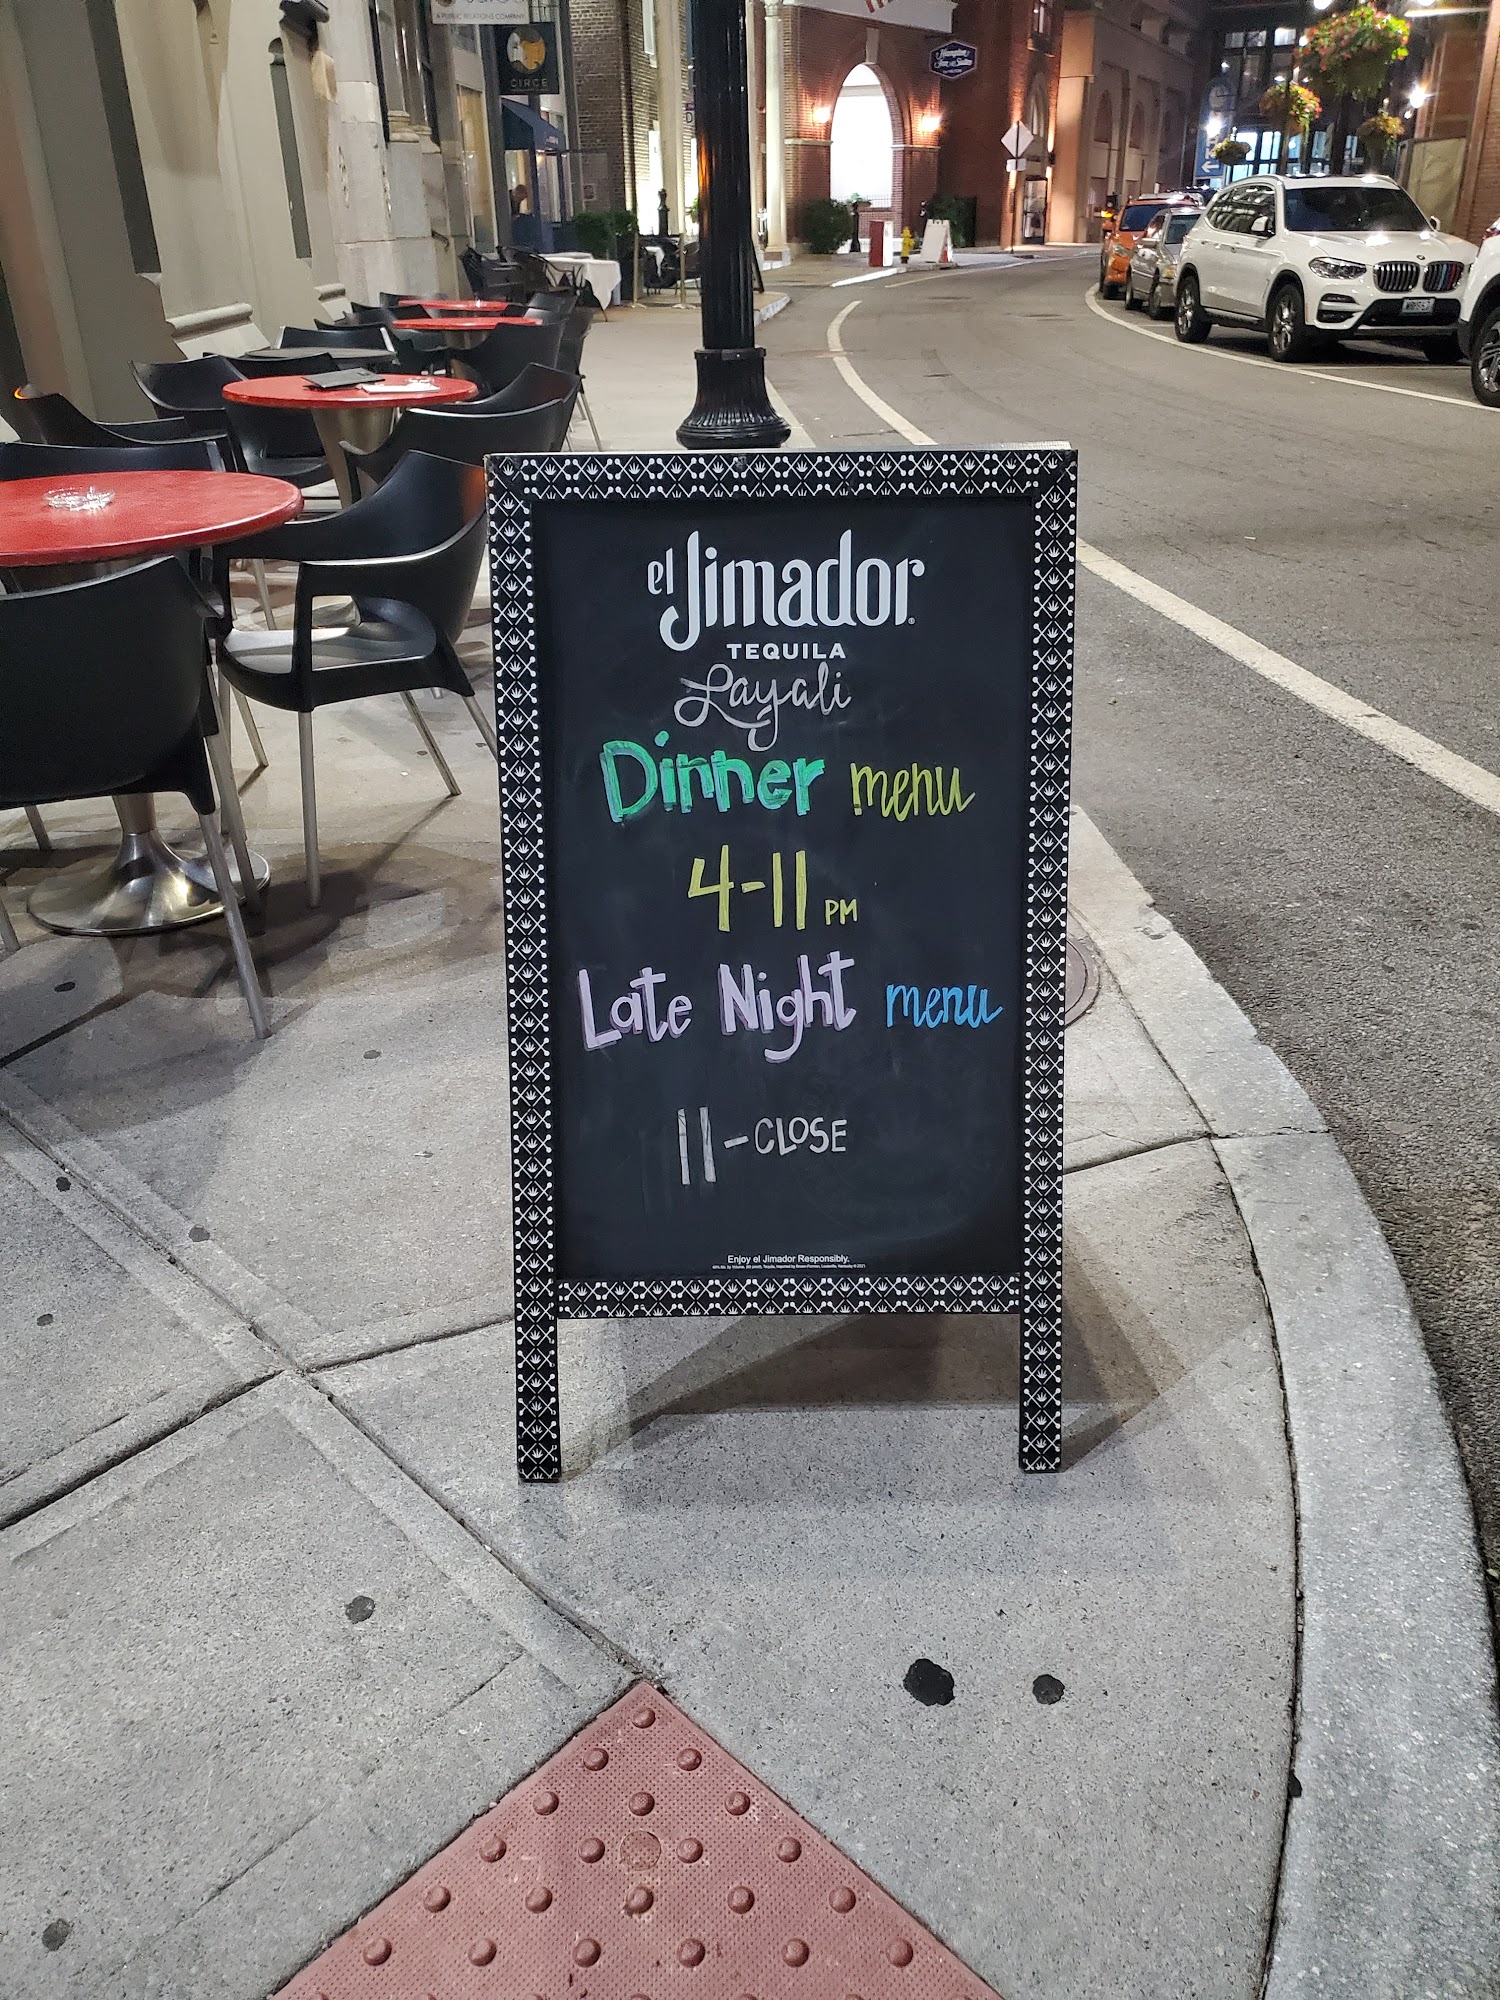 A PUBLIC RELATIONS COMPANY
CIRCE
Hampton
Inn & Suites
el Jimador
TEQUILA
Layali
Dinner menu
4-11 PM
Late Night menu
11-CLOSE
Enjoy el Jimador Responsibly.